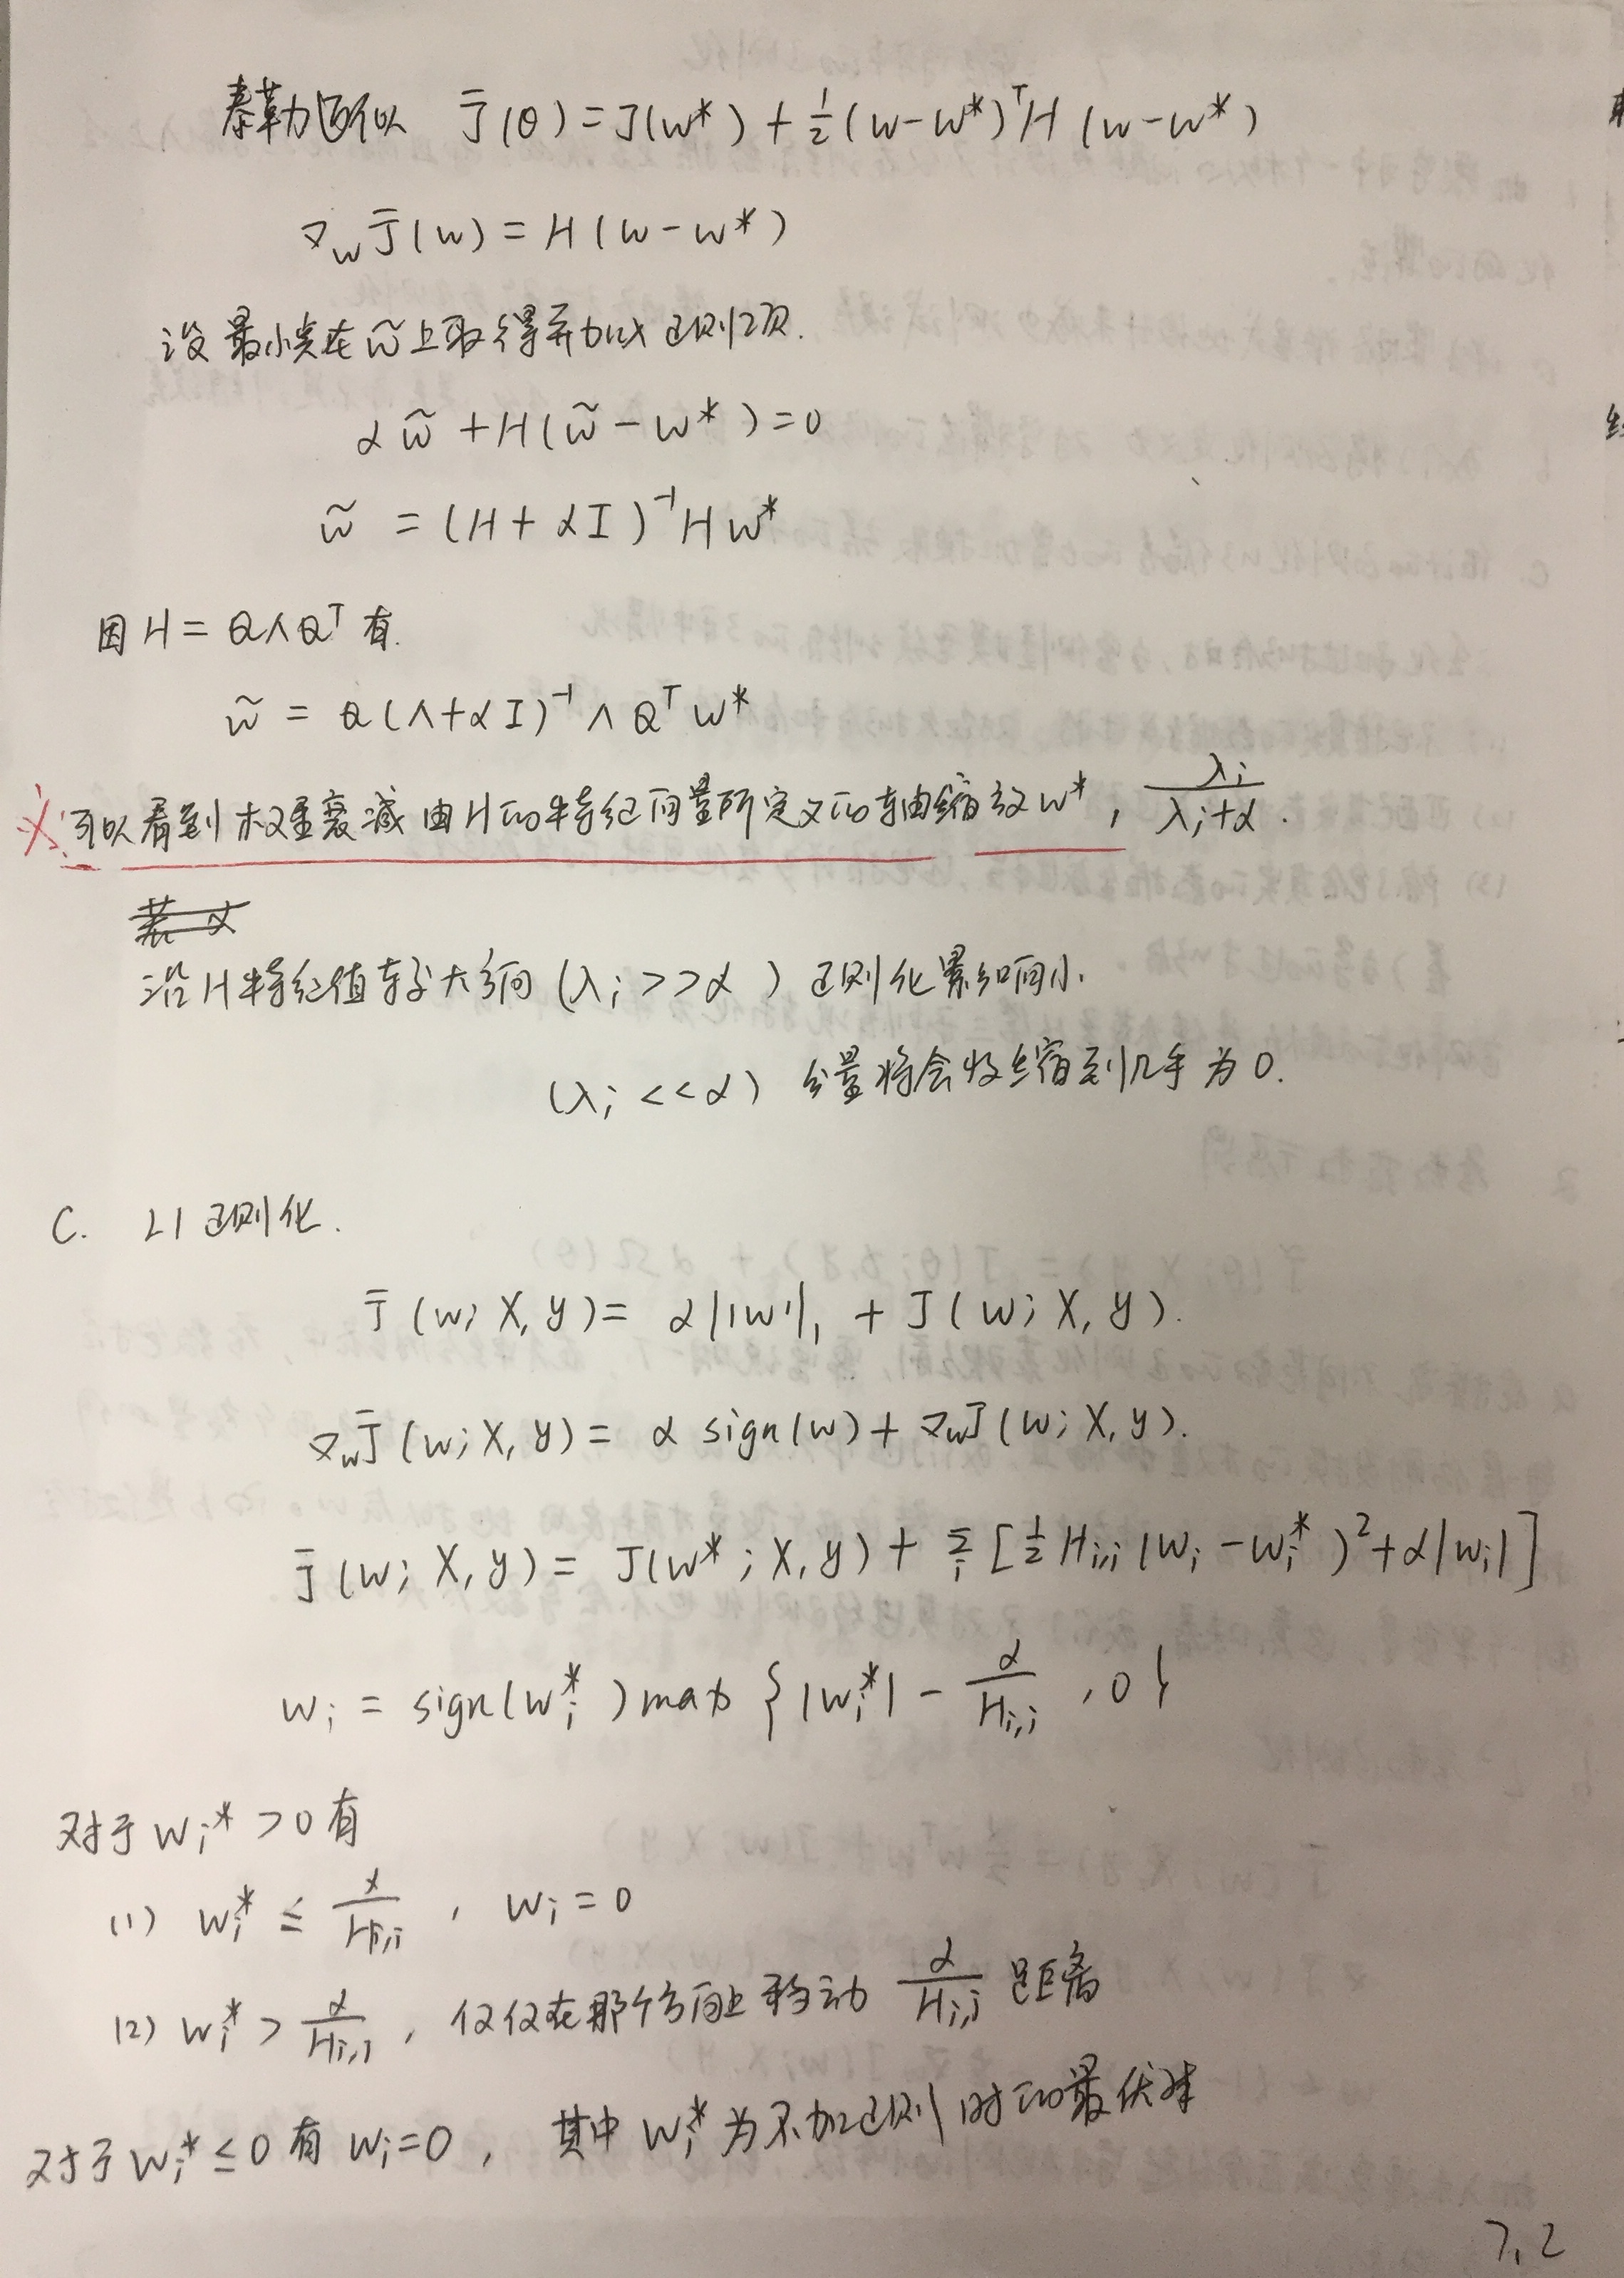 泰勒近似 J̄(θ) = J(w*) + ½(w-w*)ᵀH(w-w*)
∇_w J̄(w) = H(w-w*)
设最小点在w̃上取得并加以正则项.
αw̃ + H(w̃-w*) = 0
w̃ = (H+αI)⁻¹Hw*
因H = QΛQᵀ有.
w̃ = Q(Λ+αI)⁻¹ΛQᵀw*
※可以看到权重衰减由H的特征向量所定义的轴缩放w*, λᵢ/(λᵢ+α).
沿H特征值较大方向 (λᵢ>>α) 正则化影响小.
(λᵢ<<α) 分量将会收缩到几乎为0.
C. L1正则化.
J̄(w; X, y) = α||w||₁ + J(w; X, y).
∇_w J̄(w; X, y) = α sign(w) + ∇_w J(w; X, y).
J̄(w; X, y) = J(w*; X, y) + Σᵢ[½Hᵢ,ᵢ(wᵢ-wᵢ*)²+α|wᵢ|]
wᵢ = sign(wᵢ*)max{|wᵢ*| - α/Hᵢ,ᵢ, 0}
对于wᵢ* > 0有
(1) wᵢ* ≤ α/Hᵢ,ᵢ, wᵢ = 0
(2) wᵢ* > α/Hᵢ,ᵢ, 仅仅在那个方向上移动 α/Hᵢ,ᵢ 距离
对于wᵢ* ≤ 0有wᵢ=0, 其中wᵢ*为不加正则时的最优解
7.2